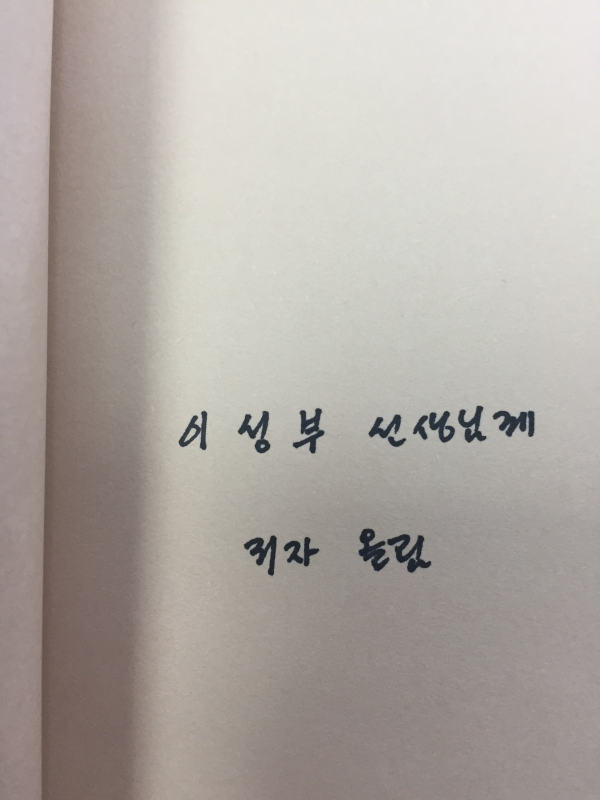 이성부 선생님께
저자 올림